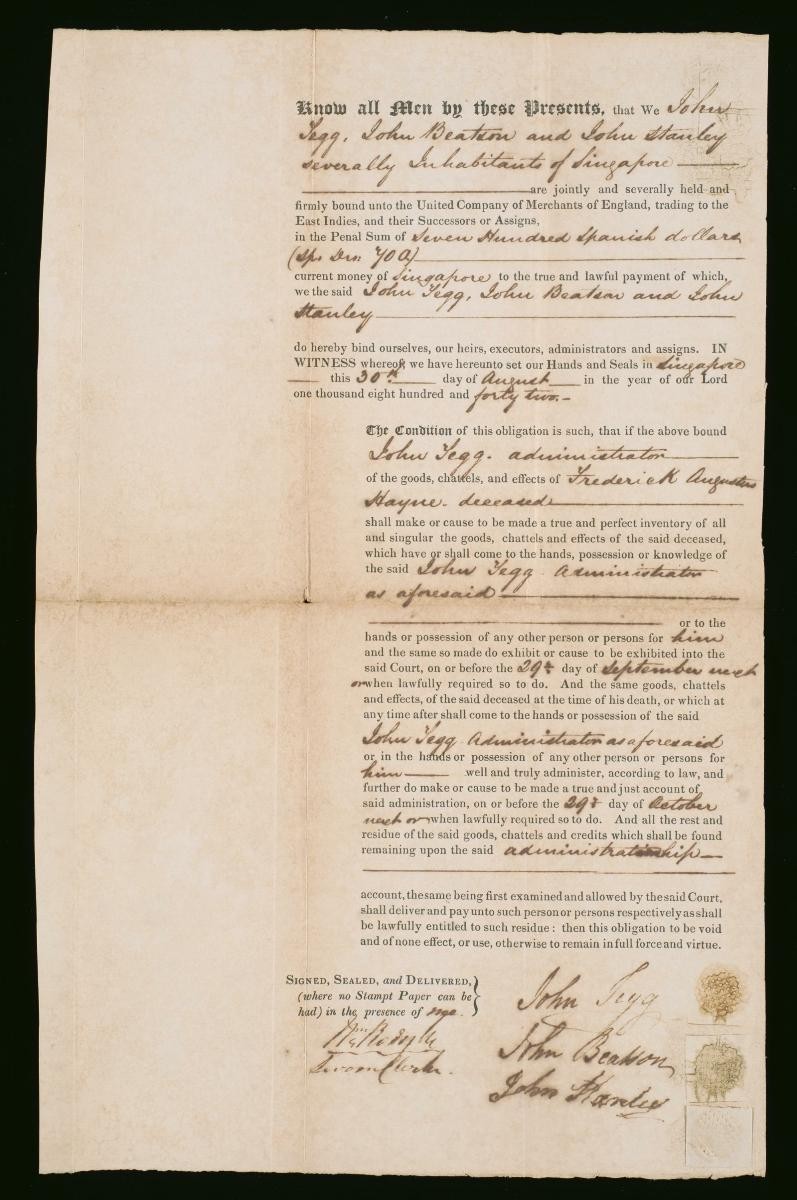 Know all Men by these Presents, that We John
Tegg, John Beatson and John Stanley
severally Inhabitants of Singapore
are jointly and severally held and
firmly bound unto the United Company of Merchants of England, trading to the
East Indies, and their Successors or Assigns,
in the Penal Sum of Seven Hundred Spanish dollars
(Sps Drs 700)
current money of Singapore to the true and lawful payment of which,
we the said John Tegg, John Beatson and John
Stanley
do hereby bind ourselves, our heirs, executors, administrators and assigns. IN
WITNESS whereof, we have hereunto set our Hands and Seals in Singapore
this 30th day of August in the year of our Lord
one thousand eight hundred and forty two.-
The Condition of this obligation is such, that if the above bound
John Tegg. administrator
of the goods, chattels, and effects of Frederick Augustus
Hayne. deceased
shall make or cause to be made a true and perfect inventory of all
and singular the goods, chattels and effects of the said deceased,
which have or shall come to the hands, possession or knowledge of
the said John Tegg Administrator
as aforesaid
or to the
hands or possession of any other person or persons for him
and the same so made do exhibit or cause to be exhibited into the
said Court, on or before the 29th day of September next
or when lawfully required so to do. And the same goods, chattels
and effects, of the said deceased at the time of his death, or which at
any time after shall come to the hands or possession of the said
John Tegg Administrator as aforesaid
or in the hands or possession of any other person or persons for
him well and truly administer, according to law, and
further do make or cause to be made a true and just account of
said administration, on or before the 29th day of October
next or when lawfully required so to do. And all the rest and
residue of the said goods, chattels and credits which shall be found
remaining upon the said administrationship
account, the same being first examined and allowed by the said Court,
shall deliver and pay unto such person or persons respectively as shall
be lawfully entitled to such residue : then this obligation to be void
and of none effect, or use, otherwise to remain in full force and virtue.
SIGNED, SEALED, and DELIVERED,
(where no Stampt Paper can be
had) in the presence of me.
Wm
Sworn Clerk.
John Tegg
John Beatson
John Stanley